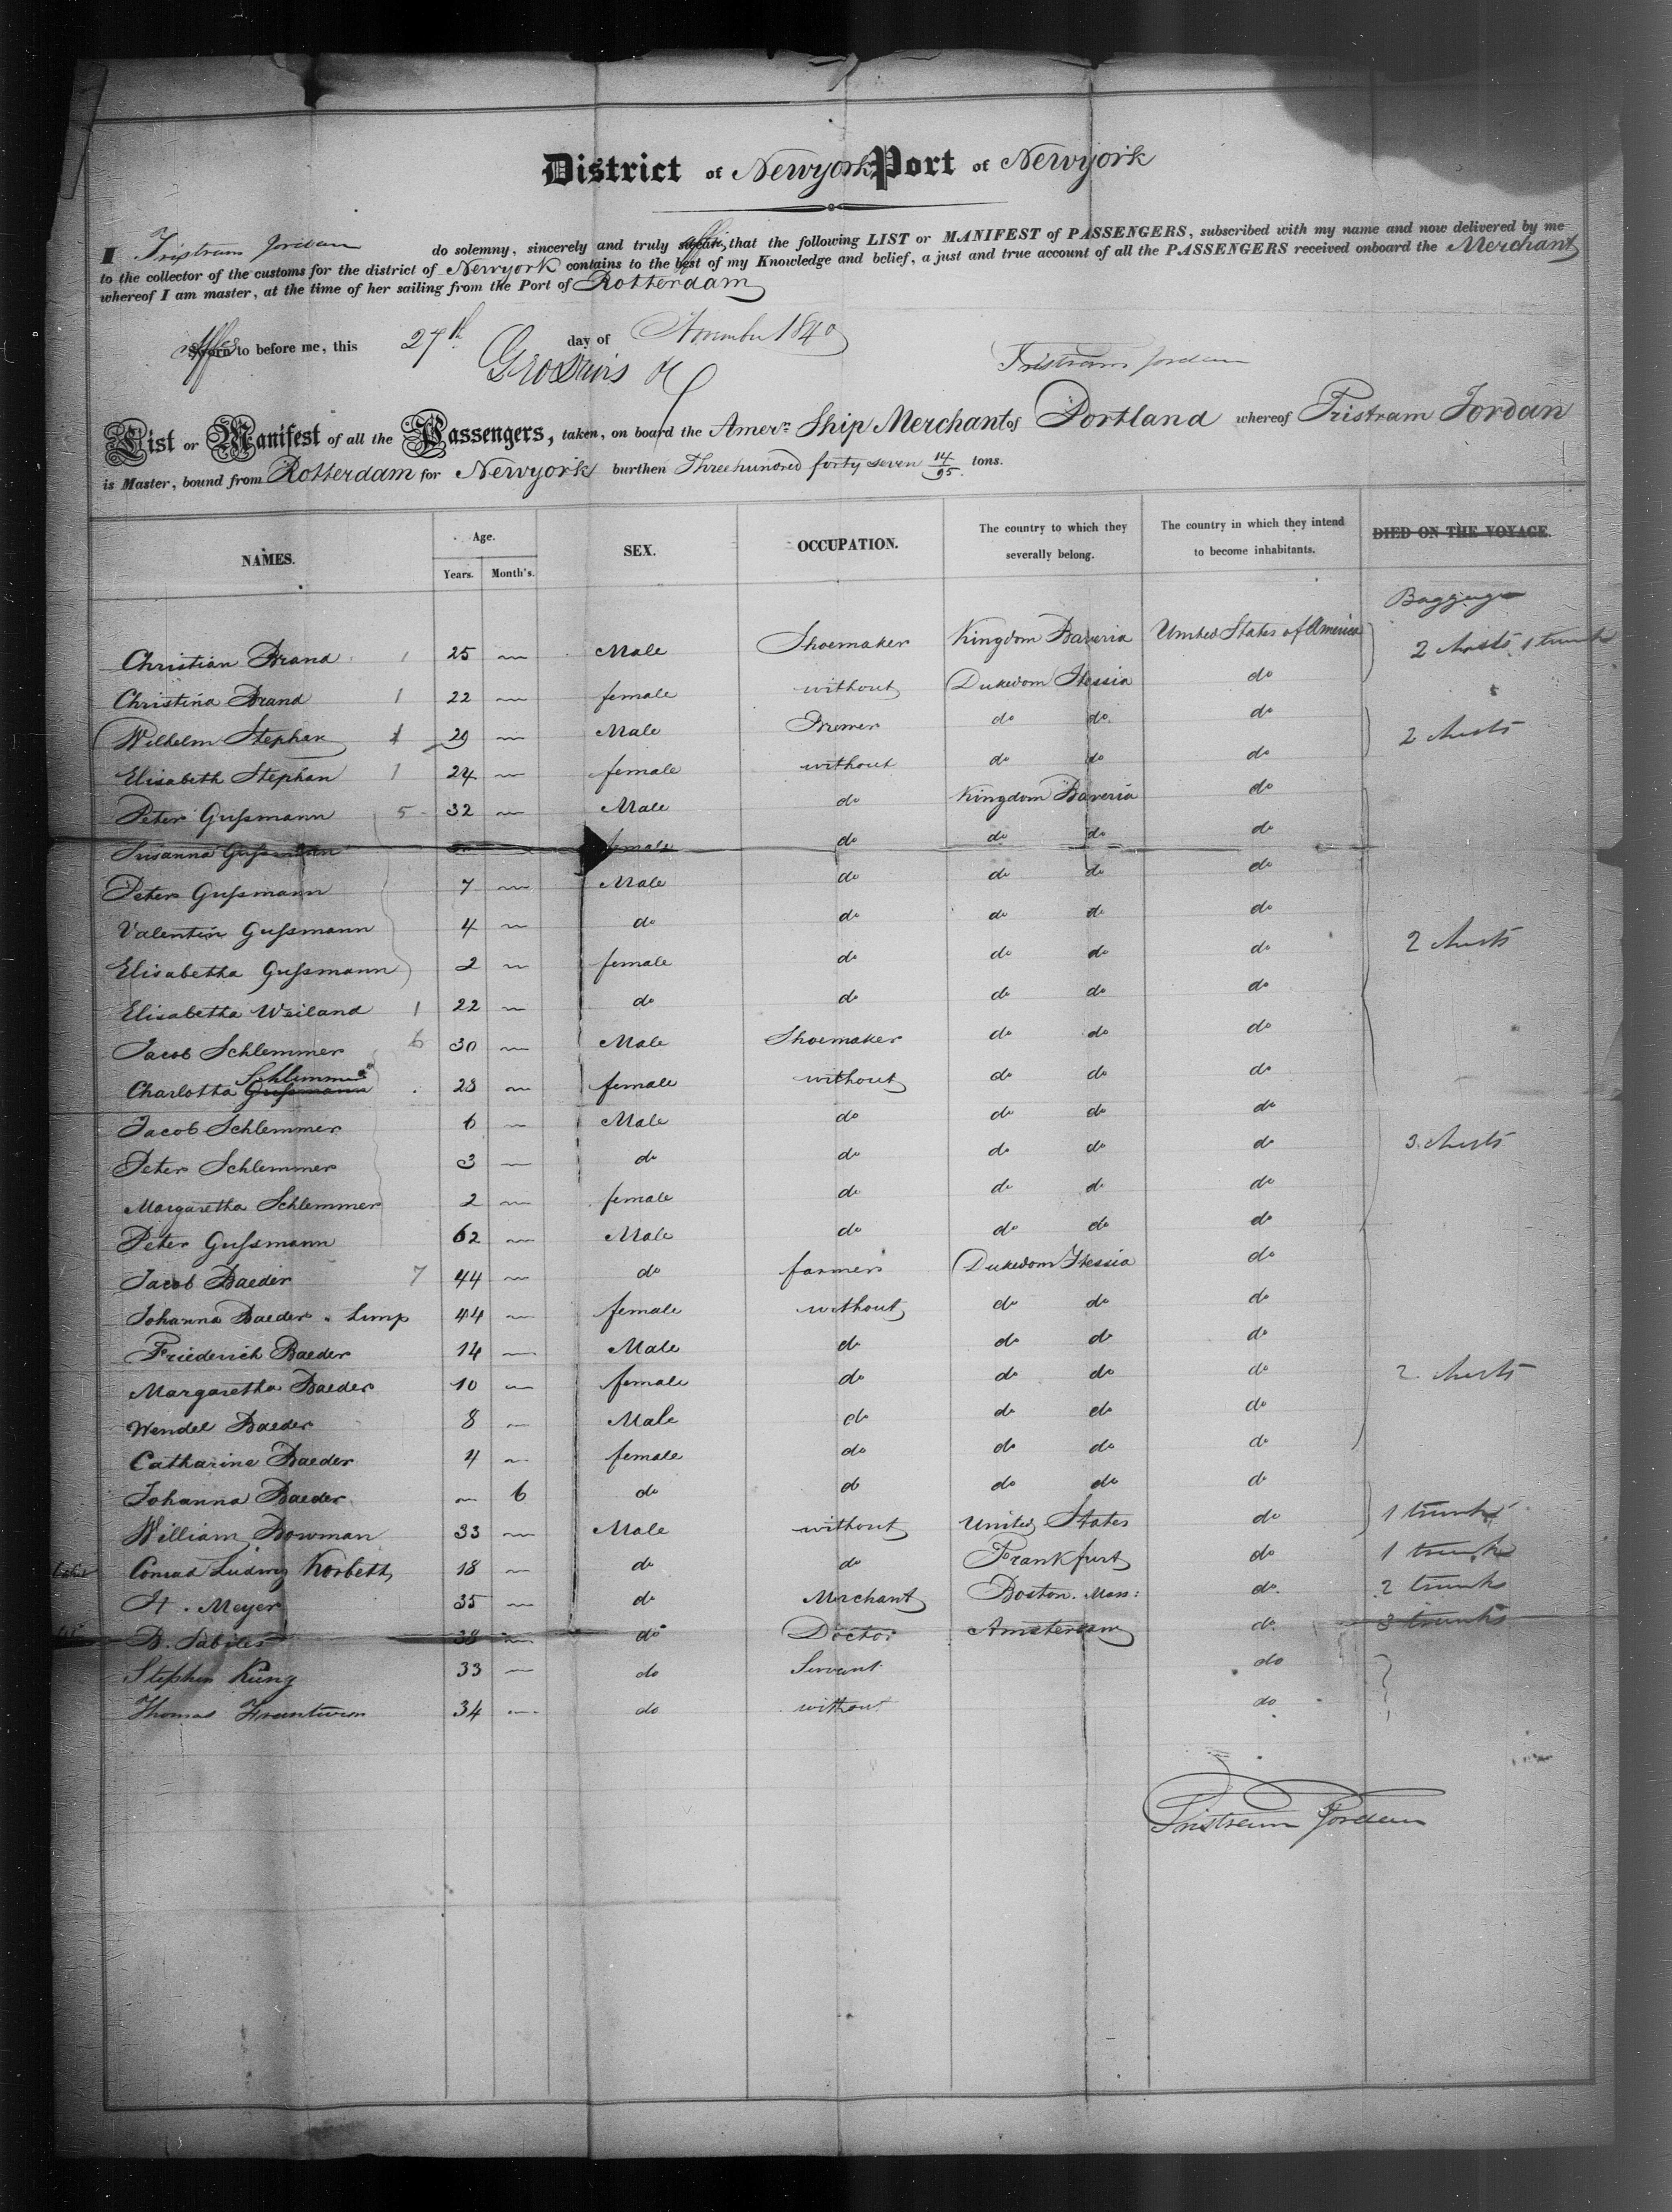 District of Newyork Port of Newyork
I Tristram Jordan do solemny, sincerely and truly affir, that the following LIST or MANIFEST of PASSENGERS, subscribed with my name and now delivered by me
to the collector of the customs for the district of Newyork contains to the best of my Knowledge and belief, a just and true account of all the PASSENGERS received onboard the Merchant
whereof I am master, at the time of her sailing from the Port of Rotterdam
Sworn to before me, this 27th day of November 1840
Tristram Jordan
List or Manifest of all the Passengers, taken, on board the Amern Ship Merchant of Portland whereof Tristram Jordan
is Master, bound from Rotterdam for Newyork burthen Threehundred forty seven 14/95 tons.
NAMES. Age. Years. Month's. SEX. OCCUPATION. The country to which they severally belong. The country in which they intend to become inhabitants. DIED ON THE VOYAGE.
Baggage
Christian Brand 1 25 — Male Shoemaker Kingdom Baveria United States of America 2 chests 1 trunk
Christina Brand 1 22 — female without Dukedom Hessia do
Wilhelm Stephan 1 29 — Male do do do 2 chests
Elisabeth Stephan 1 24 — female without do do do
Peter Gußmann 5 32 — Male do Kingdom Baveria do
Susanna Gußmann female do do do do
Peter Gußmann 7 — Male do do do do
Valentin Gußmann 4 — do do do do do 2 chests
Elisabetha Gußmann 2 — female do do do do
Elisabetha Weiland 1 22 — do do do do do
Jacob Schlemmer 6 30 — Male Shoemaker do do do
Charlotha Gußmann Schlemmer 28 — female without do do do
Jacob Schlemmer 6 — Male do do do do
Peter Schlemmer 3 — do do do do do 3 chests
Margaretha Schlemmer 2 — female do do do do
Peter Gußmann 62 — Male do do do do
Jacob Baeder 7 44 — do farmer Dukedom Hessia do
Johanna Baeder . Limp 44 — female without do do do
Friederich Baeder 14 — Male do do do do
Margaretha Baeder 10 — female do do do do 2 chests
Wendel Baeder 8 — Male do do do do
Catharine Baeder 4 — female do do do do
Johanna Baeder — 6 do do do do do
William Bowman 33 — Male without United States do 1 trunk
Conrad Ludwig Korbett 18 — do do Frankfurt do 1 trunk
H. Meyer 35 — do Merchant Boston. Mass: do 2 trunks
B. 38 — do Doctor Amsterdam do 3 trunks
Stephen Küng 33 — do Servant do
Thomas 34 — do without do
Tristram Jordan